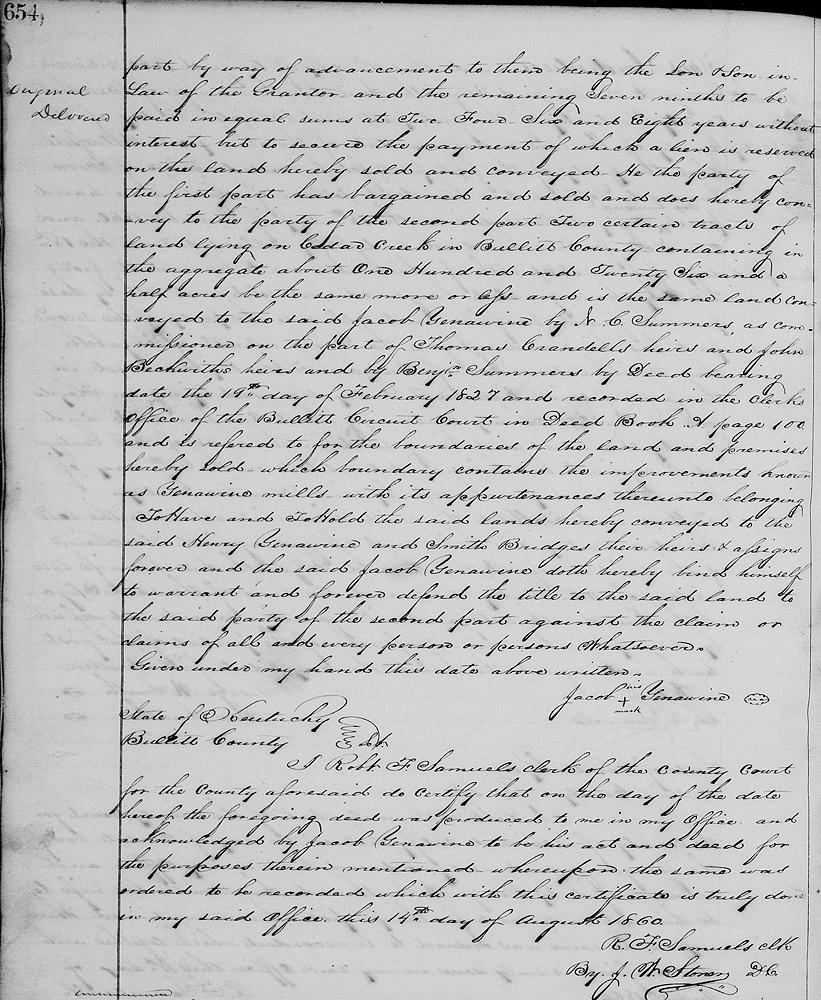 654
Original
Delivered
part by way of advancement to them being the Son & Son-in-
Law of the Grantor and the remaining Seven ninths to be
paid in equal sums at Two Four Six and Eight years without
interest but to secure the payment of which a lien is reserved
on the land hereby sold and conveyed He the party of
the first part has bargained and sold and does hereby con=
-vey to the party of the second part Two certain tracts of
land lying on Cedar Creek in Bullitt County containing in
the aggregate about One Hundred and Twenty Six and a
half acres be the same more or less and is the same land con-
veyed to the said Jacob Genawine by N. C. Summers, as com-
missioner on the part of Thomas Crandells heirs and John
Beckwiths heirs and by Benjn Summers by Deed bearing
date the 19th day of February 1827 and recorded in the Clerks
Office of the Bullitt Circuit Court in Deed Book A page 100
and is refered to for the boundaries of the land and premises
hereby sold which boundary contains the improvements known
as Genawine mills with its appurtenances thereunto belonging
To Have and To Hold the said lands hereby conveyed to the
said Henry Genawine and Smith Bridges their heirs & assigns
forever and the said Jacob Genawine doth hereby bind himself
to warrant and forever defend the title to the said land to
the said party of the second part against the claim or
claims of all and every person or persons Whatsoever.
Given under my hand this date above written.
Jacob his + mark Genawine
State of Kentucky
Bullitt County Sct
I Robt F. Samuels clerk of the County Court
for the County aforesaid do certify that on the day of the date
hereof the foregoing deed was produced to me in my Office and
acknowledged by Jacob Genawine to be his act and deed for
the purposes therein mentioned whereupon the same was
ordered to be recorded which with this certificate is truly done
in my said Office this 14th day of August 1860.
R. F. Samuels clk
By. J. W. Stoner DC